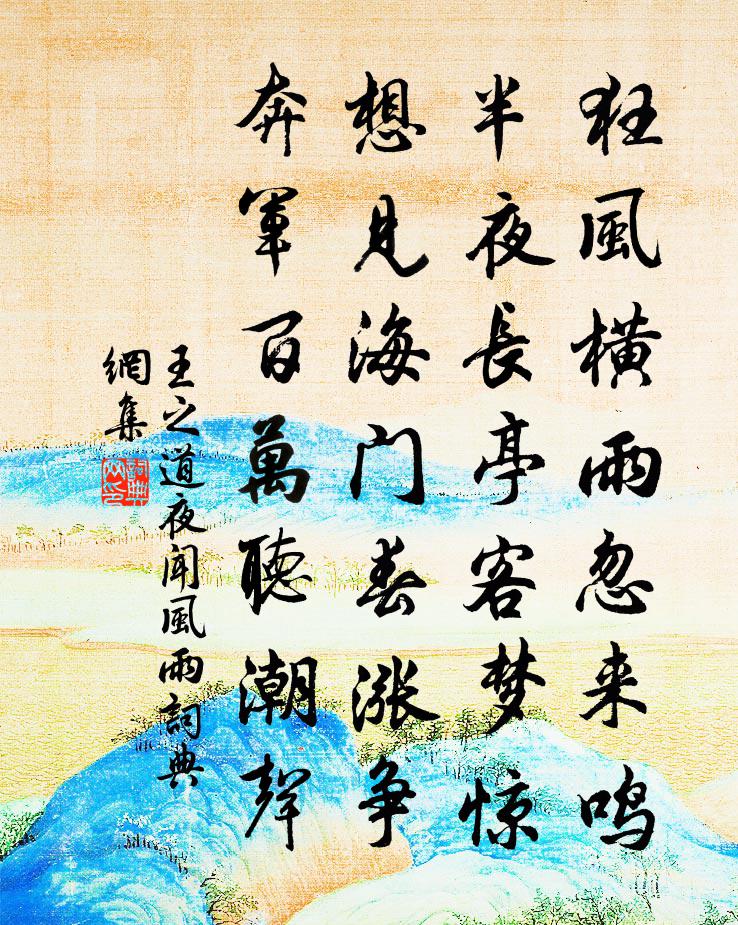 狂風橫雨忽来鸣
半夜長亭客梦惊
想見海门春涨争
奔軍百萬聽潮聲
王之道夜闻風雨詞典
網集
詞典